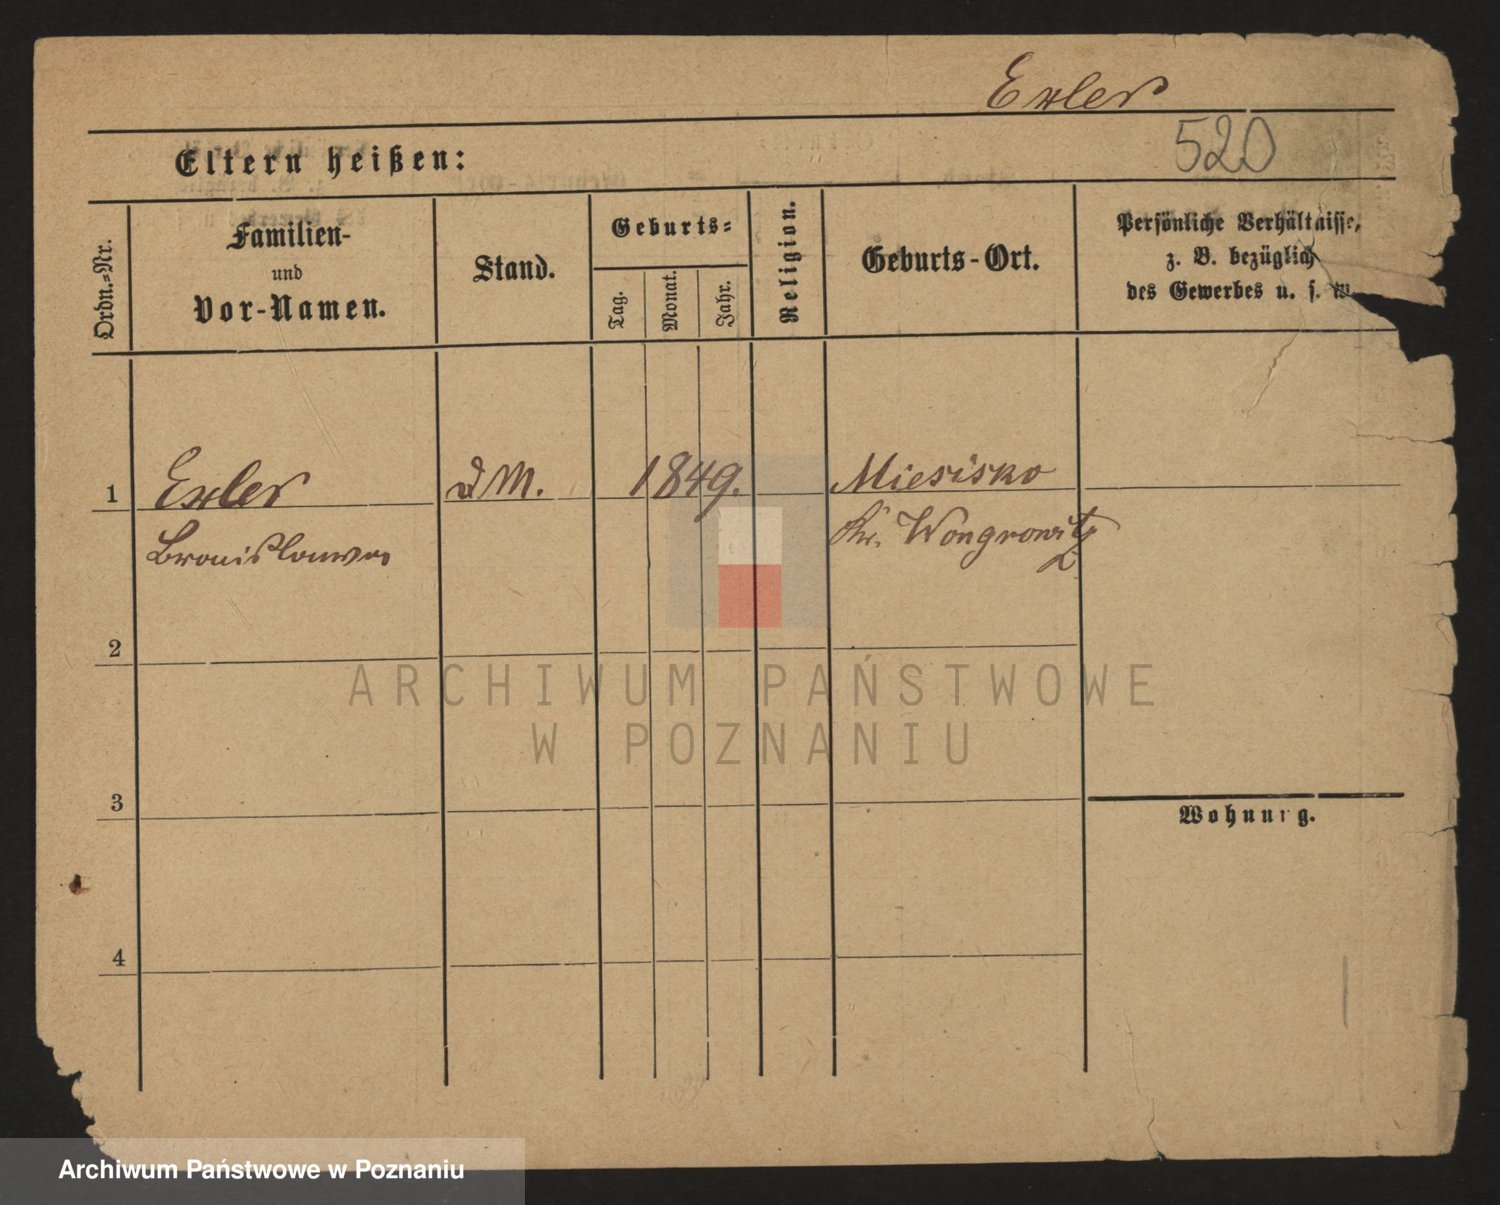 Exler
520
Eltern heißen:
Ordn.-Nr.
Familien-
und
Vor-Namen.
Stand.
Geburts-
Tag.
Monat.
Jahr.
Religion.
Geburts-Ort.
Persönliche Verhältnisse,
z. B. bezüglich
des Gewerbes u. s. w.
1
Exler
DM.
1849.
Miesisko
Bronislawa
Kr. Wongrowitz
2
3
Wohnung.
4
ARCHIWUM PAŃSTWOWE
W POZNANIU
Archiwum Państwowe w Poznaniu